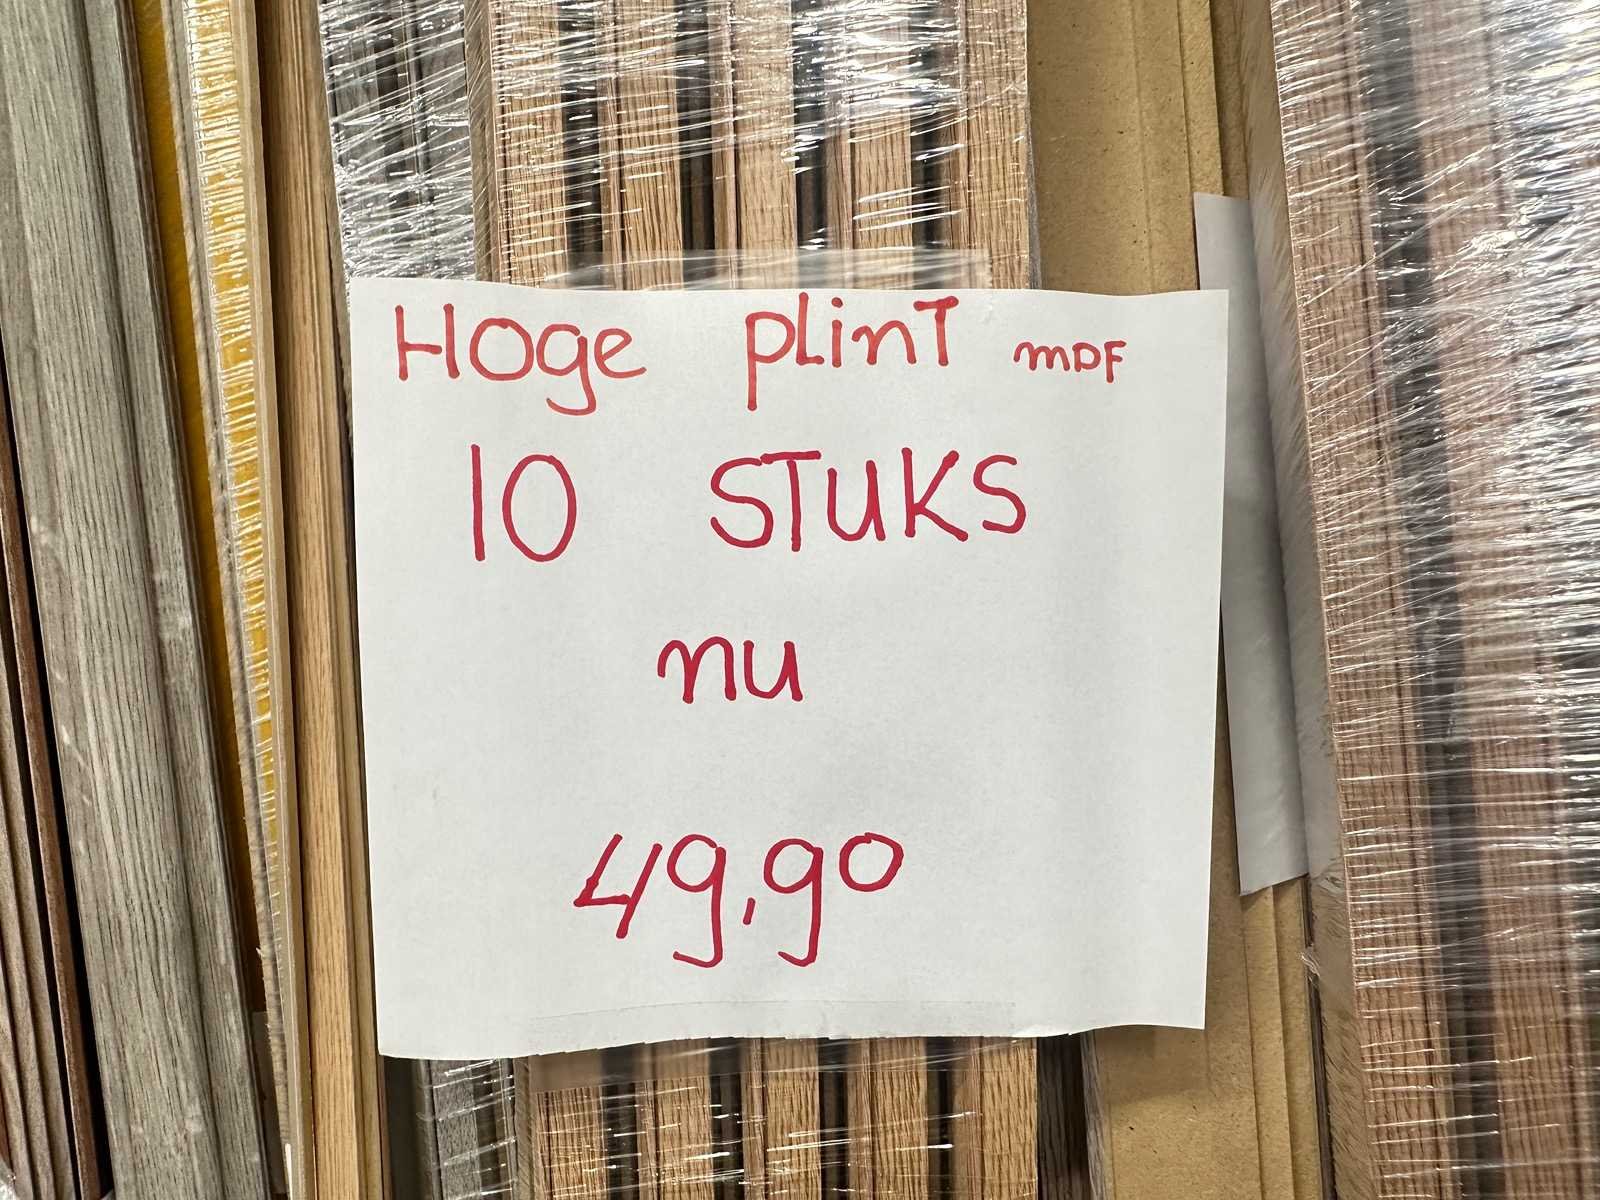 Hoge plint MDF
10 STUKS
nu
49,90